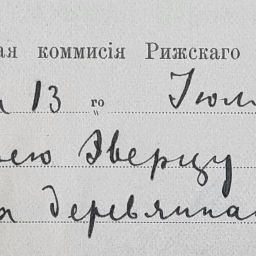 ая коммисія Рижскаго
13 го Іюл
ею Эверцу
я деревяннa